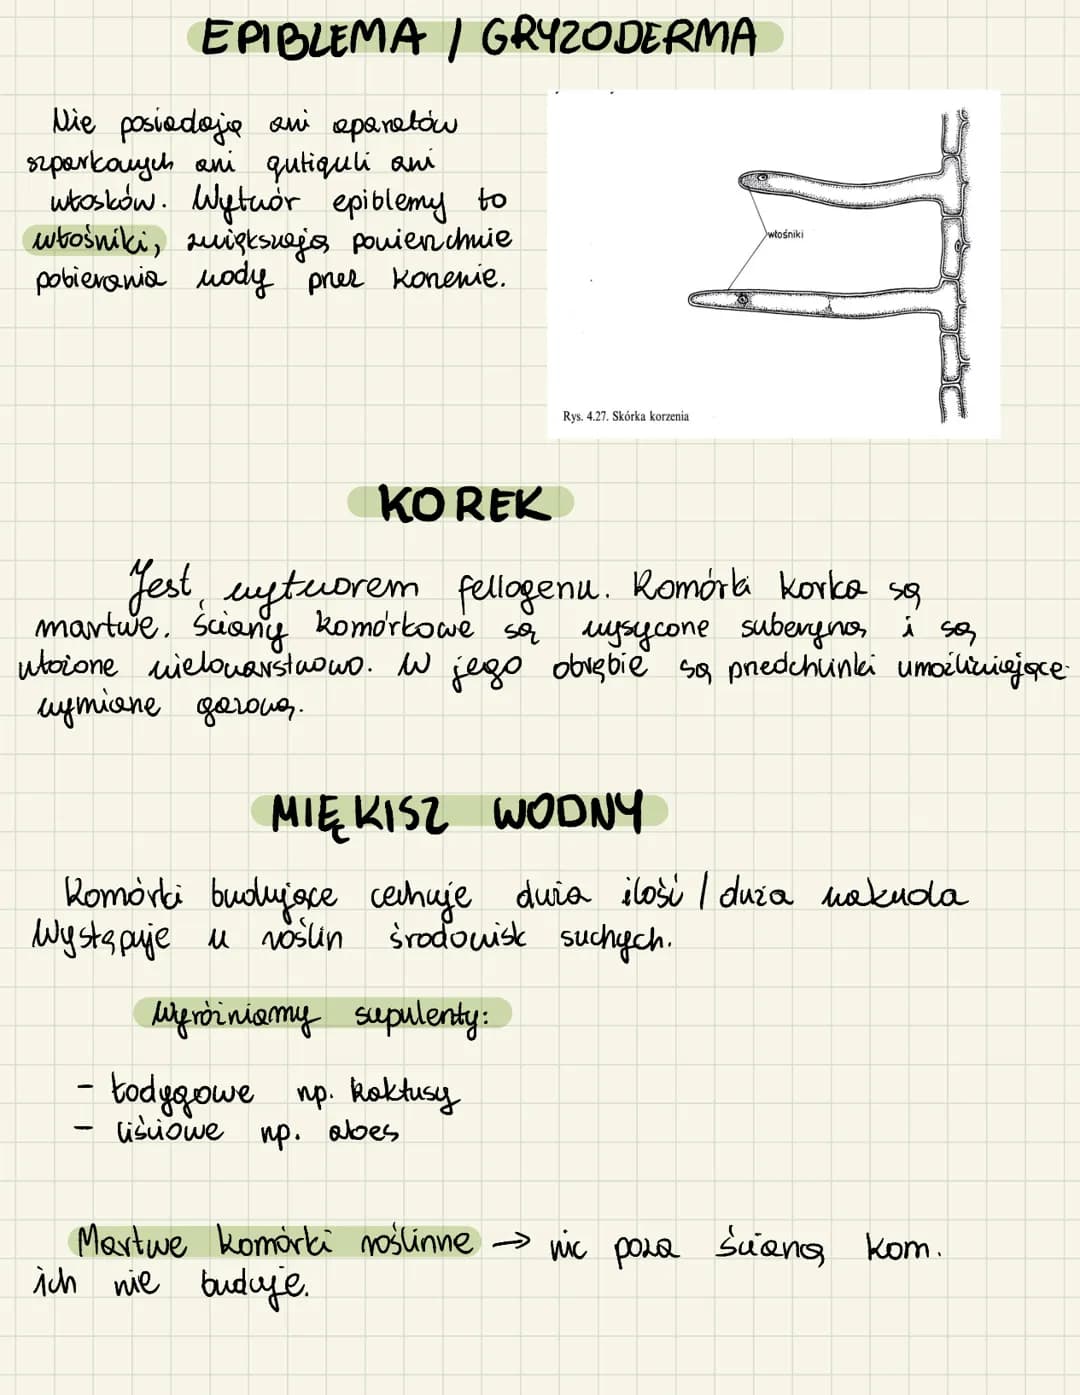 EPIBLEMA / GRYZODERMA
Nie posiadają ani aparatów
szparkowych ani qutiquli ani
włosków. Wytwór epiblemy to
włośniki, zwiększają powierzchnie
pobierania wody przez korzenie.
włośniki
Rys. 4.27. Skórka korzenia
KOREK
Jest wytworem fellogenu. Komórki korka są
martwe. Ściany komórkowe są wysycone suberyną i są
ułożone wielowarstwowo. W jego obrębie są przedchlinki umożliwiające
wymianę gazową.
MIĘKISZ WODNY
Komórki budujące cechuje duża ilość / duża wakuola
Występuje u roślin środowisk suchych.
Wyróżniamy sukulenty:
- łodygowe np. kaktusy
- liściowe np. aloes
Martwe komórki roślinne → nic poza ścianą kom.
ich nie buduje.